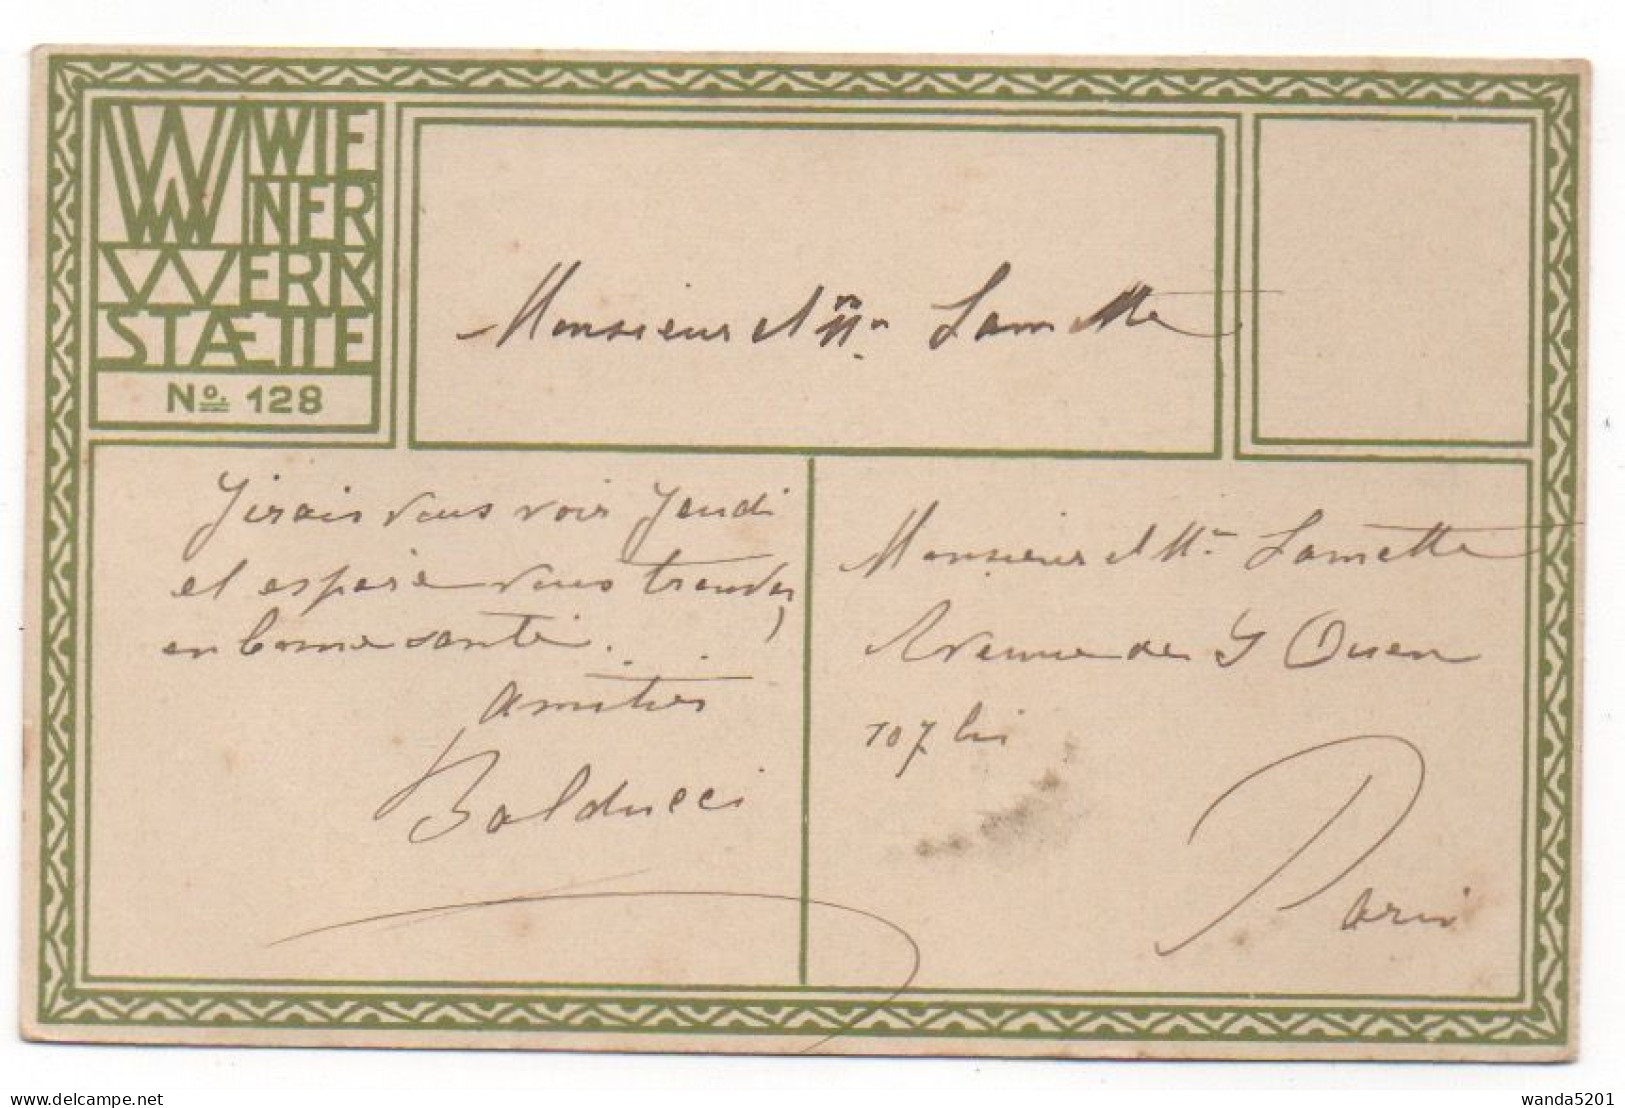 WW
WIE
NER
WERK
STÆTTE
No. 128
Monsieur et Mme Lamette
J'irais vous voir Jeudi
et espere vous trouver
en bonne santé.
amitiés
Balducci
Monsieur et Me Lamette
Avenue de St Ouen
107 bis
Paris
delcampe.net
wanda5201